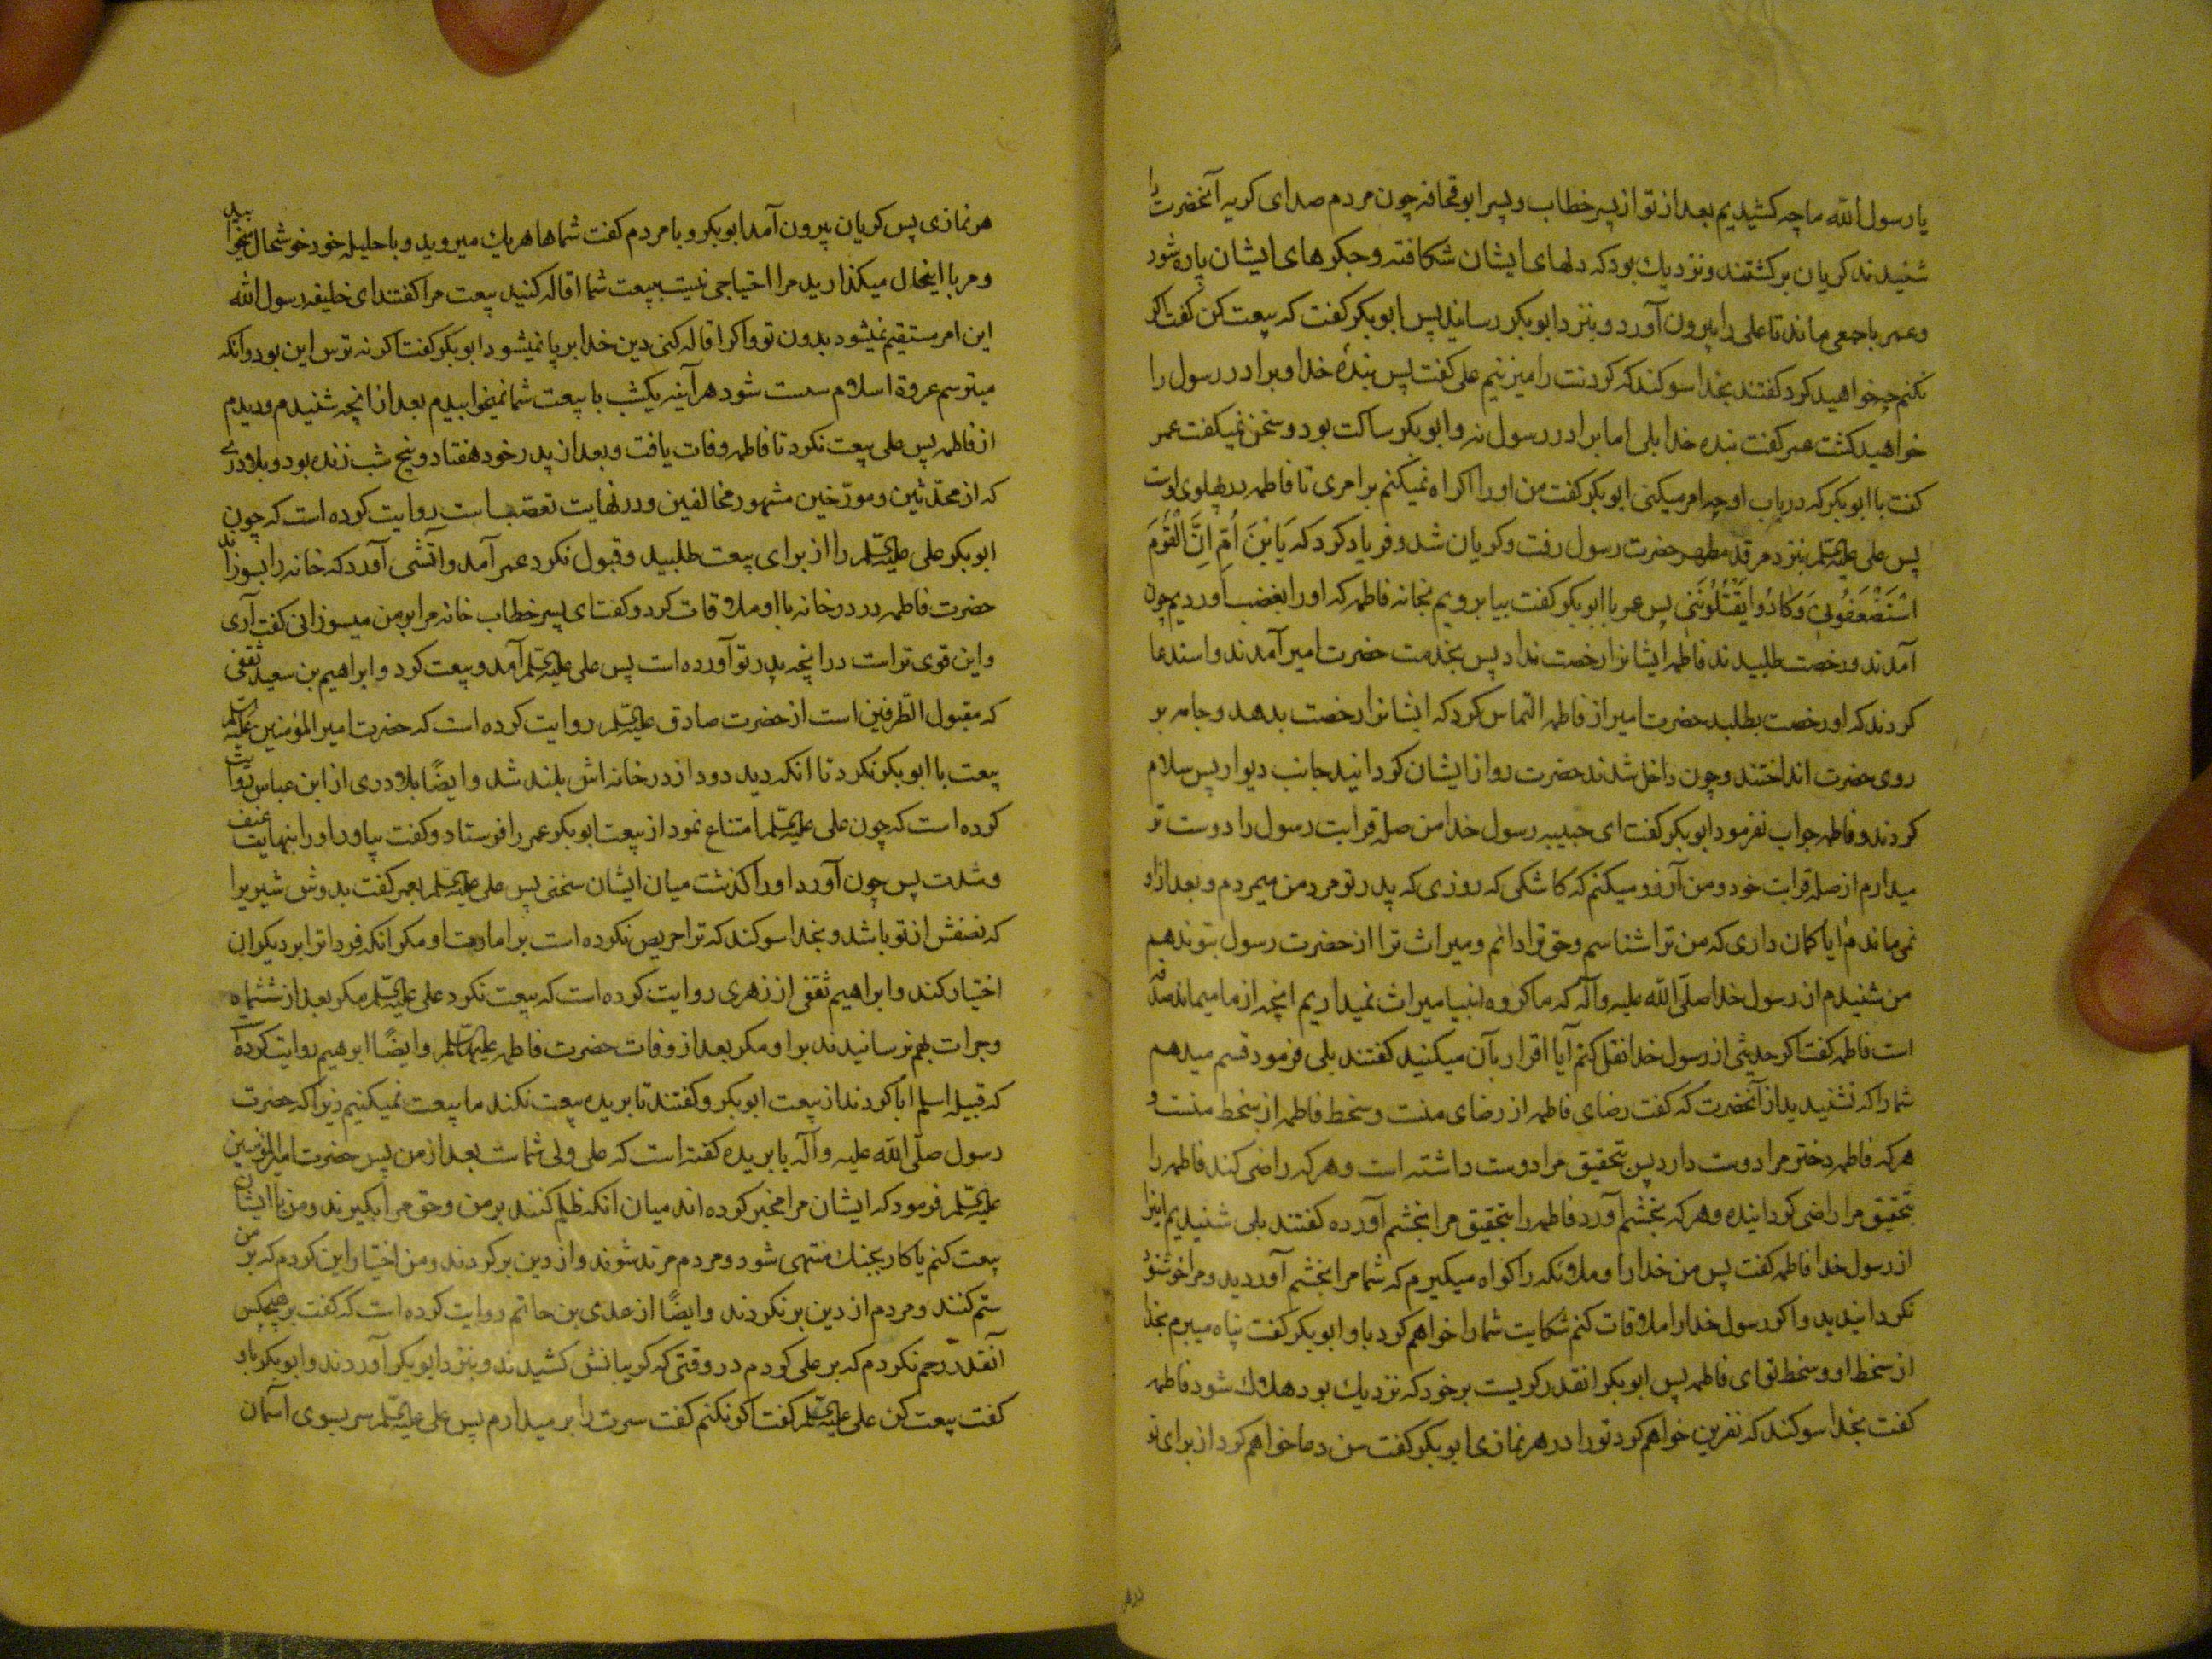 یا رسول الله ما چه کشیدیم بعد از تو از پسر خطاب و پسر ابو قحافه چون مردم صدای کریه آنحضرت را
شنیدند کریان برکشتند و نزدیك بود که دلهای ایشان شکافته و جکرهای ایشان پاره شود
و عمر با جمعی ماند تا علی را بیرون آورد و بنزد ابوبکر رسانید پس ابوبکر کفت که بیعت کن کفت اکر
نکنم چه خواهید کرد کفتند بخدا سوکند که کردنت را میزنیم علی کفت پس بندهٔ خدا و برادر رسول را
خواهید کشت عمر کفت بنده خدا بلی اما برادر رسول نه و ابوبکر ساکت بود و سخن نمیکفت عمر
کفت با ابوبکر که در باب او چه امر میکنی ابوبکر کفت من او را اکراه نمیکنم بر امری تا فاطمه در پهلوی اوست
پس علی علیه‌السلم بنزد مرقد مطهر حضرت رسول رفت و کریان شد و فریاد کرد که یَا بْنَ أُمِّ اِنَّ الْقَوْمَ
اسْتَضْعَفُونِی وَ کَادُوا یَقْتُلُونَنِی پس عمر با ابوبکر کفت بیا برویم بخانه فاطمه که او را بغضب آوردیم چون
آمدند و رخصت طلبیدند فاطمه ایشانرا رخصت نداد پس بخدمت حضرت امیر آمدند و استدعا
کردند که او رخصت بطلبد حضرت امیر از فاطمه التماس کرد که ایشانرا رخصت بدهد و جامه بر
روی حضرت انداختند و چون داخل شدند حضرت رو از ایشان کردانید جانب دیوار پس سلام
کردند و فاطمه جواب نفرمود ابوبکر کفت ای حبیبه رسول خدا من صله قرابت رسول را دوست تر
میدارم از صله قرابت خود و من آرزو میکنم که کاشکی که روزی که پدر تو مرد من میمردم و بعد از او
نمی‌ماندم ایا کمان داری که من ترا شناسم و حق ترا دانم و میراث ترا از حضرت رسول بتو ندهم
من شنیدم از رسول خدا صلّی الله علیه و آله که ما کروه انبیا میراث نمیداریم انچه از ما میماند صدقه
است فاطمه کفت اکر حدیثی از رسول خدا نقل کنم آیا اقرار بآن میکنید کفتند بلی فرمود قسم میدهم
شما را که نشنیدید از آنحضرت که کفت رضای فاطمه از رضای منست و سخط فاطمه از سخط منست و
هر که فاطمه دختر مرا دوست دارد پس بتحقیق مرا دوست داشته است و هر که راضی کند فاطمه را
بتحقیق مرا راضی کردانیده و هر که بخشم آورد فاطمه را بتحقیق مرا بخشم آورده کفتند بلی شنیدیم اینرا
از رسول خدا فاطمه کفت پس من خدا را و ملائکه را کواه میکیرم که شما مرا بخشم آوردید و مرا خوشنود
نکردانیدید و اکر رسول خدا را ملاقات کنم شکایت شما را خواهم کرد باو ابوبکر کفت پناه میبرم بخدا
از سخط او و سخط تو ای فاطمه پس ابوبکر انقدر کریست بر خود که نزدیك بود هلاك شود فاطمه
کفت بخدا سوکند که نفرین خواهم کرد تو را در هر نمازی ابوبکر کفت من دعا خواهم کرد از برای تو
هر نمازی پس کریان بیرون آمد ابوبکر و با مردم کفت شماها هر یك میروید و با حلیله خود خوشحال میخوابید
و مرا باینحال میکذارید مرا احتیاجی نیست ببیعت شما اقاله کنید بیعت مرا کفتند ای خلیفه رسول الله
این امر مستقیم نمیشود بدون تو و اکر اقاله کنی دین خدا بر پا نمیشود ابوبکر کفت اکر نه ترس این بود و آنکه
میترسم عروة اسلام سست شود هر آینه یکشب با بیعت شما نمیخوابیدم بعد از انچه شنیدم و دیدم
از فاطمه پس علی بیعت نکرد تا فاطمه وفات یافت و بعد از پدر خود هفتاد و پنج شب زنده بود و بلادری
که از محدّثین و مورّخین مشهور مخالفین و در نهایت تعصّب است روایت کرده است که چون
ابوبکر علی علیه‌السلم را از برای بیعت طلبید و قبول نکرد عمر آمد و آتشی آورد که خانه را بسوزاند
حضرت فاطمه در در خانه با او ملاقات کرد و کفت ای پسر خطاب خانه مرا بر من میسوزانی کفت آری
و این قوی تر است در انچه پدر تو آورده است پس علی علیه‌السلم آمد و بیعت کرد و ابراهیم بن سعید ثقفی
که مقبول الطّرفین است از حضرت صادق علیه‌السلم روایت کرده است که حضرت امیر المؤمنین علیه‌السلم
بیعت با ابوبکر نکرد تا انکه دید دود از در خانه اش بلند شد و ایضًا بلادری از ابن عباس روایت
کرده است که چون علی علیه‌السلم امتناع نمود از بیعت ابوبکر عمر را فرستاد و کفت بیاور او را بنهایت عنف
و شدت پس چون آورد او را کذشت میان ایشان سخنی پس علی علیه‌السلم بعمر کفت بدوش شیریرا
که نصفش از تو باشد و بخدا سوکند که ترا حریص نکرده است بر امارت او مکر انکه فردا ترا بر دیکران
اختیار کند و ابراهیم ثقفی از زهری روایت کرده است که بیعت نکرد علی علیه‌السلم مکر بعد از ششماه
و جرات بهم نرسانیدند بر او مکر بعد از وفات حضرت فاطمه علیهاالسلم و ایضًا ابرهیم روایت کرده
که قبیله اسلم ابا کردند از بیعت ابوبکر و کفتند تا بریده بیعت نکند ما بیعت نمیکنیم زیرا که حضرت
رسول صلّی الله علیه و آله با بریده کفته است که علی ولی شماست بعد از من پس حضرت امیرالمؤمنین
علیه‌السلم فرمود که ایشان مرا مخیر کرده اند میان انکه ظلم کنند بر من و حق مرا بکیرند و من با ایشان
بیعت کنم یا کار بجنك منتهی شود و مردم مرتد شوند و از دین برکردند و من اختیار این کردم که بر من
ستم کنند و مردم از دین برنکردند و ایضًا از عدی بن حاتم روایت کرده است که کفت بر هیچکس
آنقدر رحم نکردم که بر علی کردم در وقتی که کریبانش کشیدند و بنزد ابوبکر آوردند و ابوبکر باو
کفت بیعت کن علی علیه‌السلم کفت اکر نکنم کفت سرت را بر میدارم پس علی علیه‌السلم سر بسوی آسمان